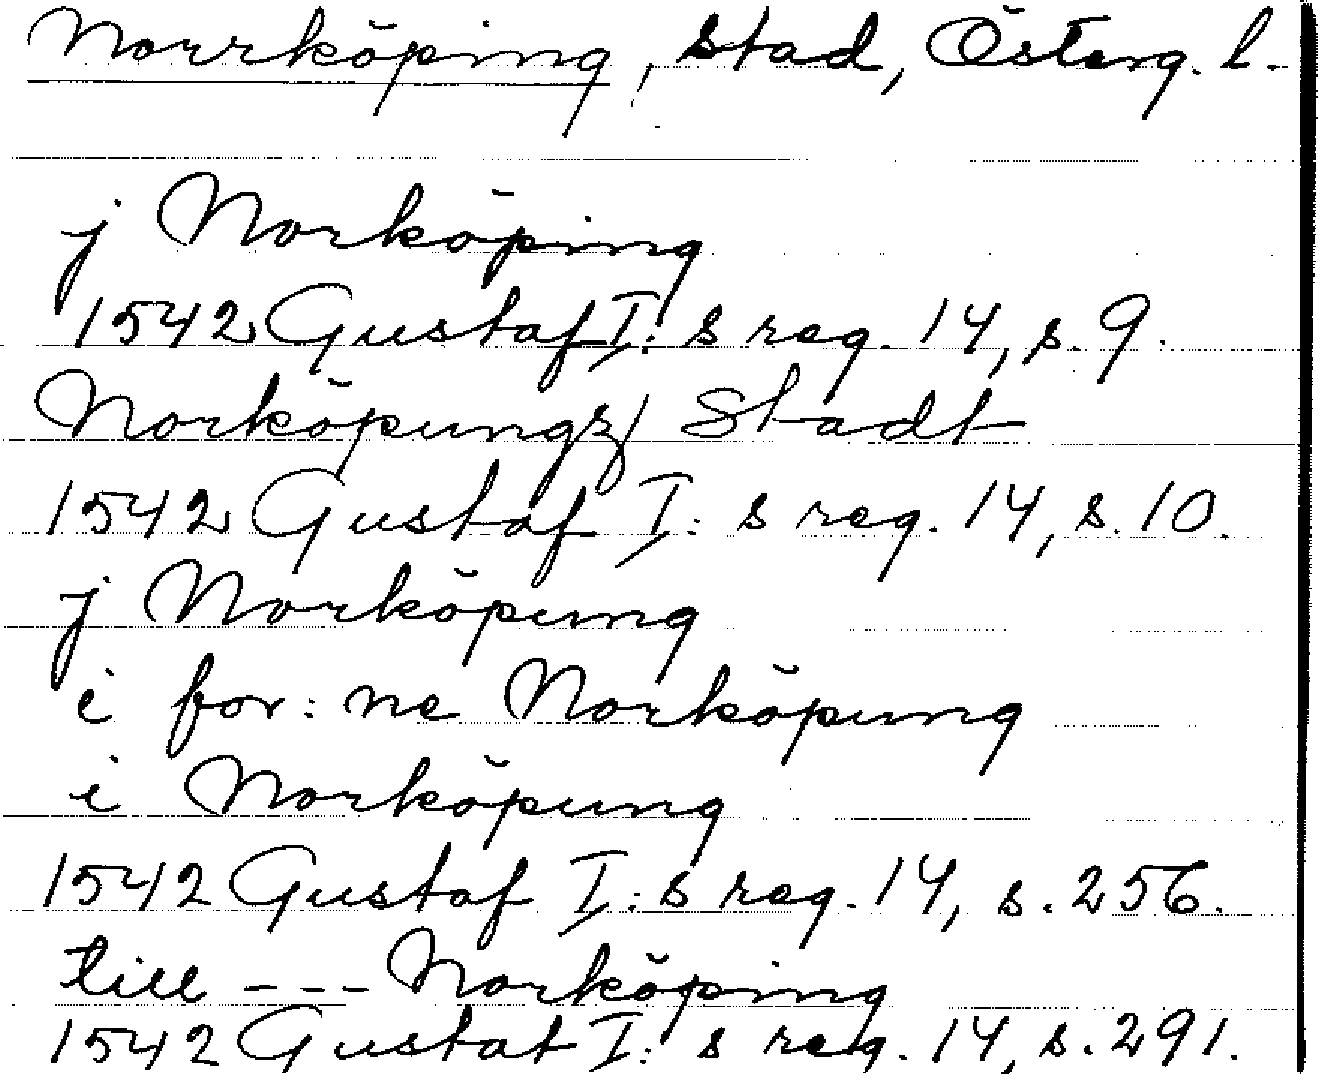 Norrköping, stad, Österg. l.
j Norköping
1542 Gustaf I: s reg. 14, s. 9.
Norköpungz/ Stadt
1542 Gustaf I: s reg. 14, s. 10.
j Norköpung
i for: ne Norköpung
i Norköpung
1542 Gustaf I: s reg. 14, s. 256.
till --- Norköping
1542 Gustaf I: s reg. 14, s. 291.